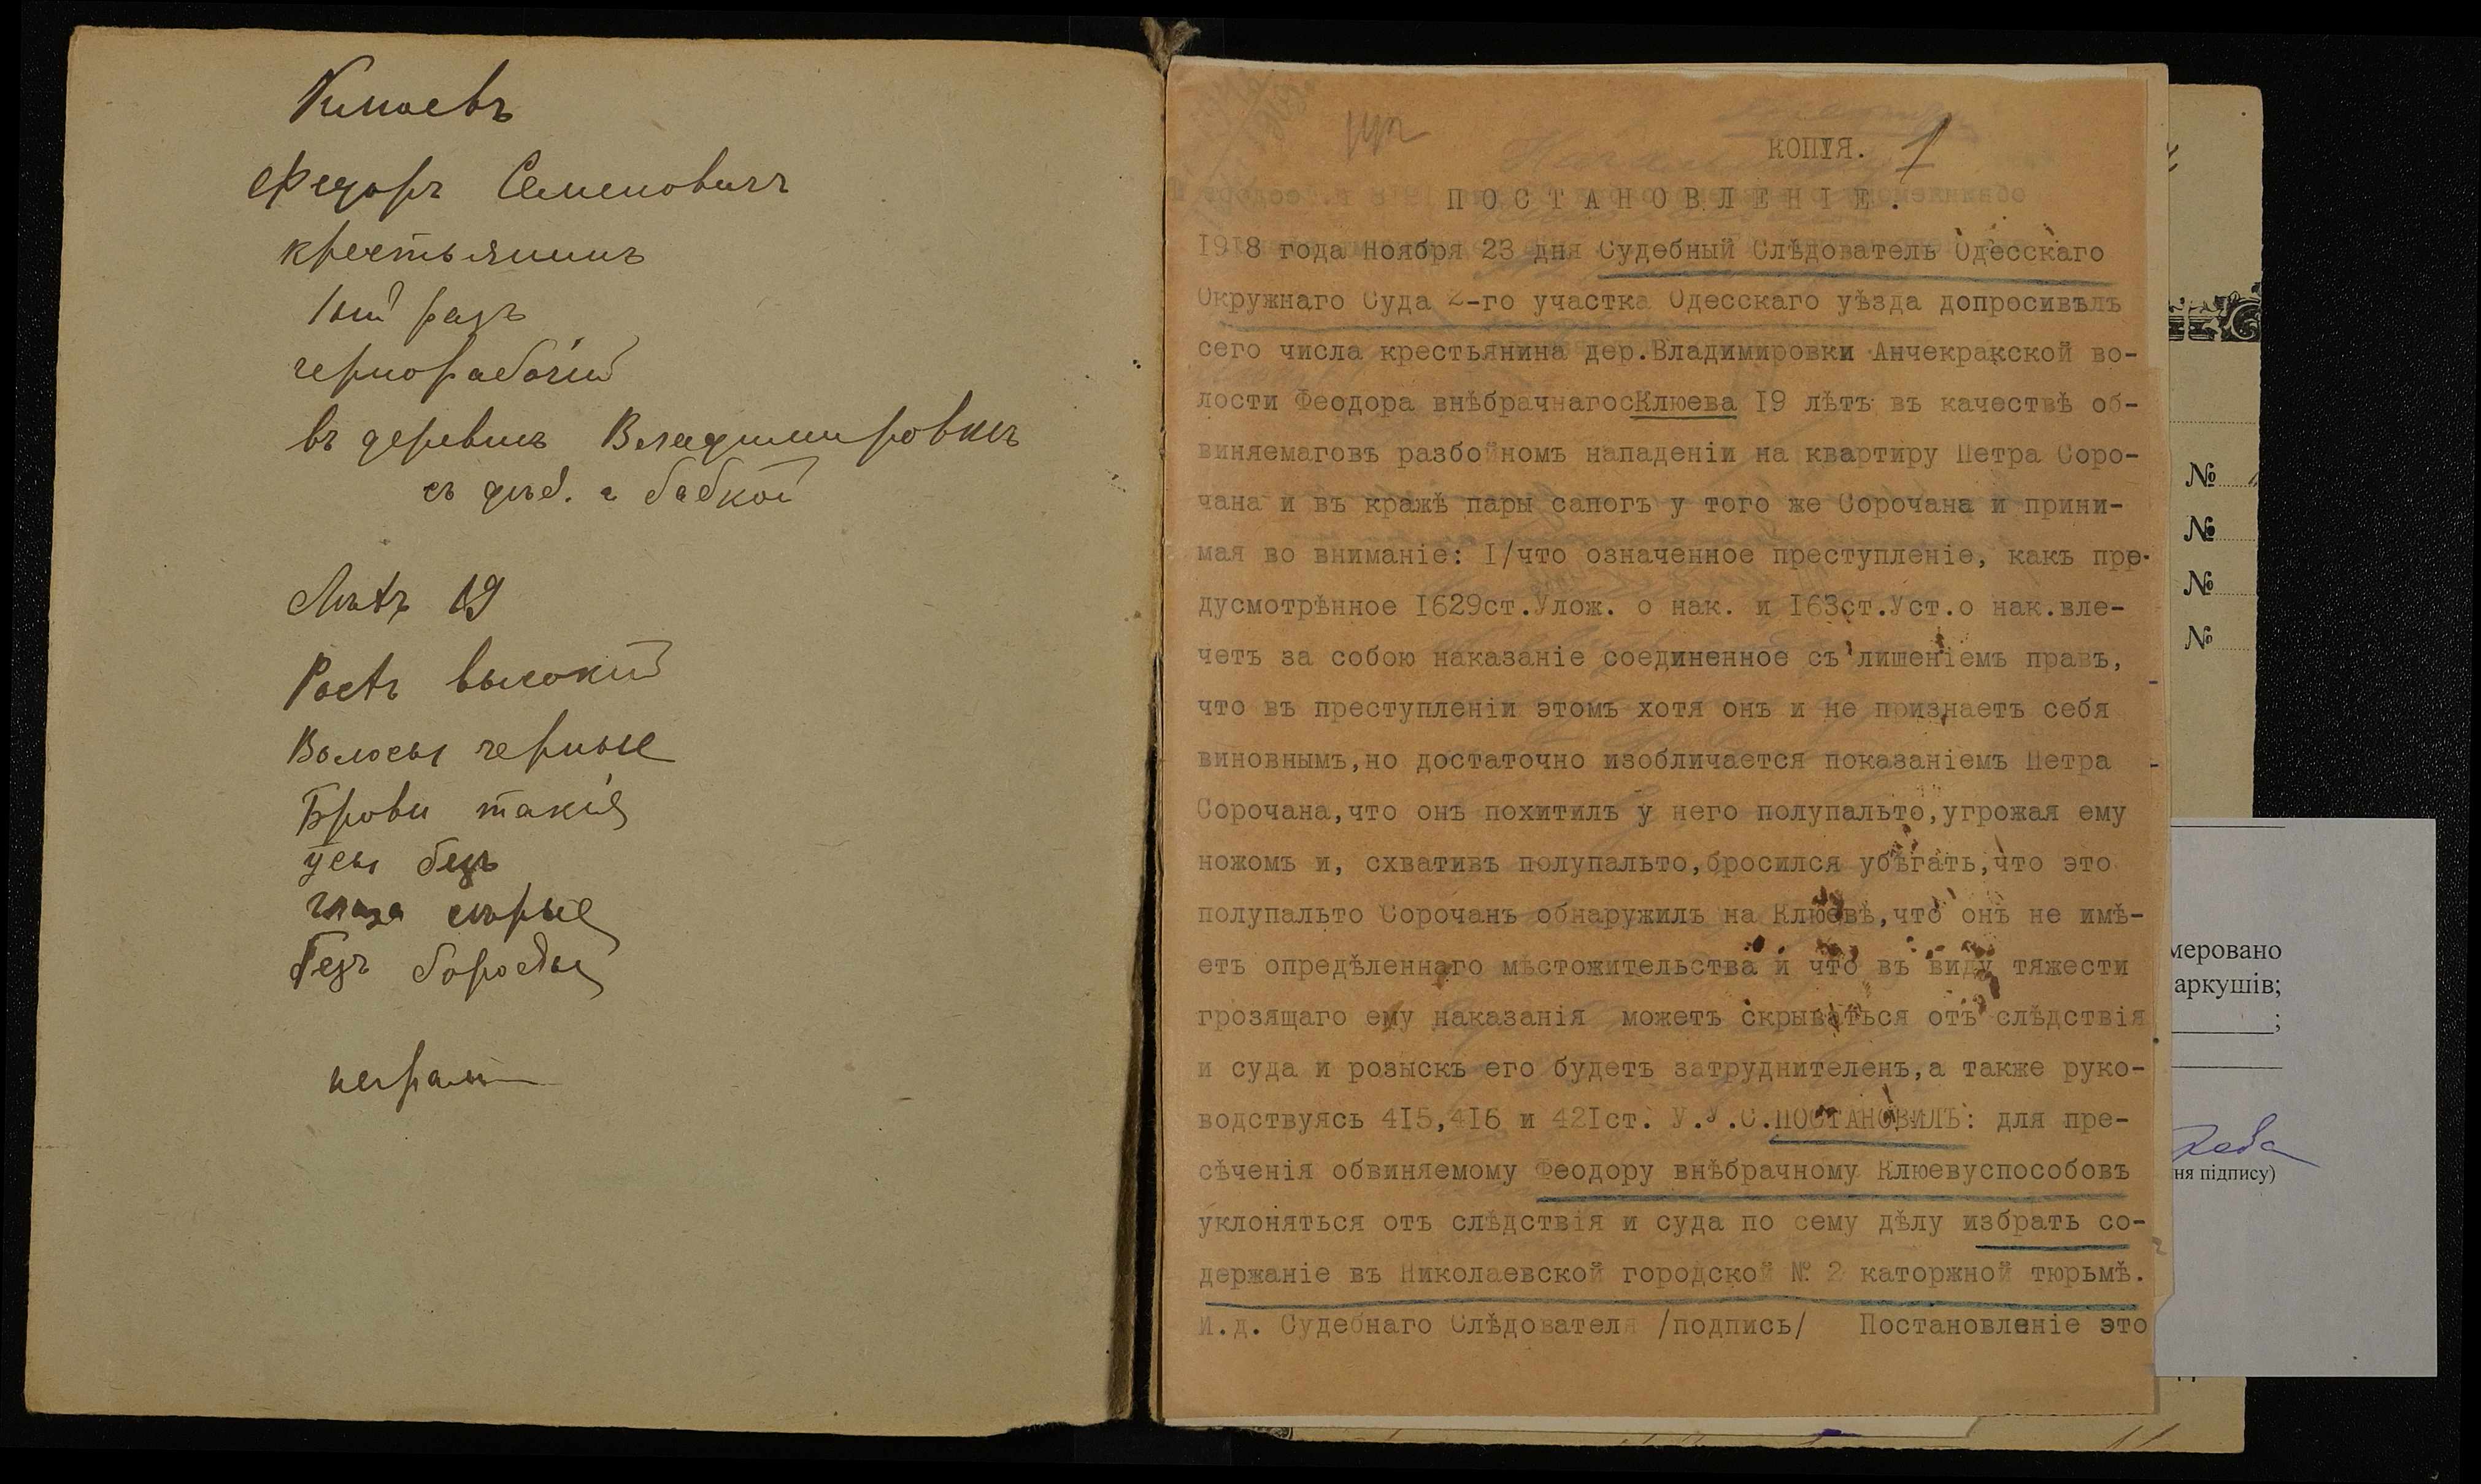 Клюевъ
Федоръ Семеновичъ
крестьянинъ
1ый разъ
чернорабочій
въ деревнѣ Владимировкѣ
съ дѣд. и бабкой
Лѣтъ 19
Ростъ высокій
Волосы черные
Брови такія
усы безъ
глаза сѣрые
безъ бороды
неграм
КОПІЯ. 1
ПОСТАНОВЛЕНІЕ.
1918 года Ноября 23 дня Судебный Слѣдователь Одесскаго
Окружнаго Суда 2-го участка Одесскаго уѣзда допросивълъ
сего числа крестьянина дер.Владимировки Анчекракской во-
лости Феодора внѣбрачнагосКлюева 19 лѣтъ въ качествѣ об-
виняемаговъ разбойномъ нападеніи на квартиру Петра Соро-
чана и въ кражѣ пары сапогъ у того же Сорочана и прини-
мая во вниманіе: I/что означенное преступленіе, какъ пре-
дусмотрѣнное 1629ст.Улож. о нак. и 163ст.Уст.о нак.вле-
четъ за собою наказаніе соединенное съ лишеніемъ правъ,
что въ преступленіи этомъ хотя онъ и не признаетъ себя
виновнымъ,но достаточно изобличается показаніемъ Петра
Сорочана,что онъ похитилъ у него полупальто,угрожая ему
ножомъ и, схвативъ полупальто,бросился убѣгать,что это
полупальто Сорочанъ обнаружилъ на Клюевѣ,что онъ не имѣ-
етъ опредѣленнаго мѣстожительства и что въ виду тяжести
грозящаго ему наказанія можетъ скрываться отъ слѣдствія
и суда и розыскъ его будетъ затруднителенъ,а также руко-
водствуясь 415,416 и 421ст. У.У.С.ПОСТАНОВИЛЪ: для пре-
сѣченія обвиняемому Феодору внѣбрачному Клюевуспособовъ
уклоняться отъ слѣдствія и суда по сему дѣлу избрать со-
держаніе въ Николаевской городской № 2 каторжной тюрьмѣ.
И.д. Судебнаго Слѣдователя /подпись/ Постановленіе это
№
№
№
№
меровано
аркушів;
;
ня підпису)